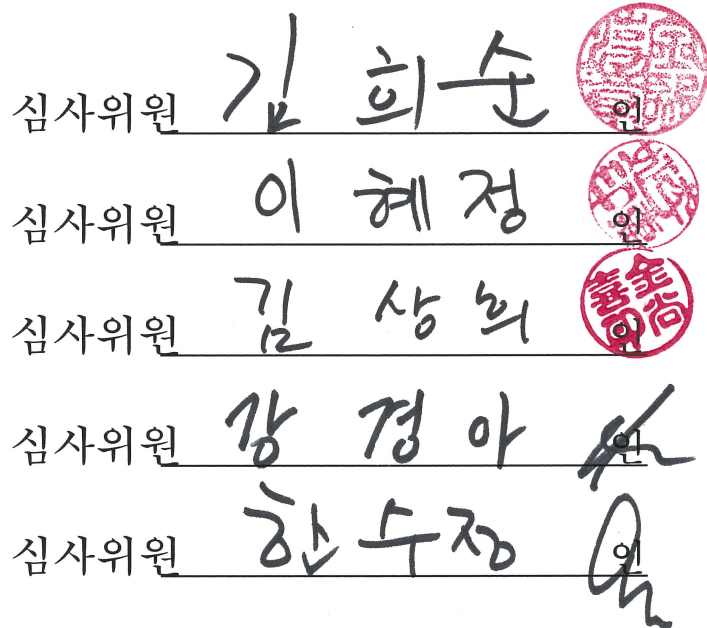 심사위원 김 희 순 인
심사위원 이 혜 정 인
심사위원 김 상 희 인
심사위원 장 경 아 인
심사위원 한 수 정 인